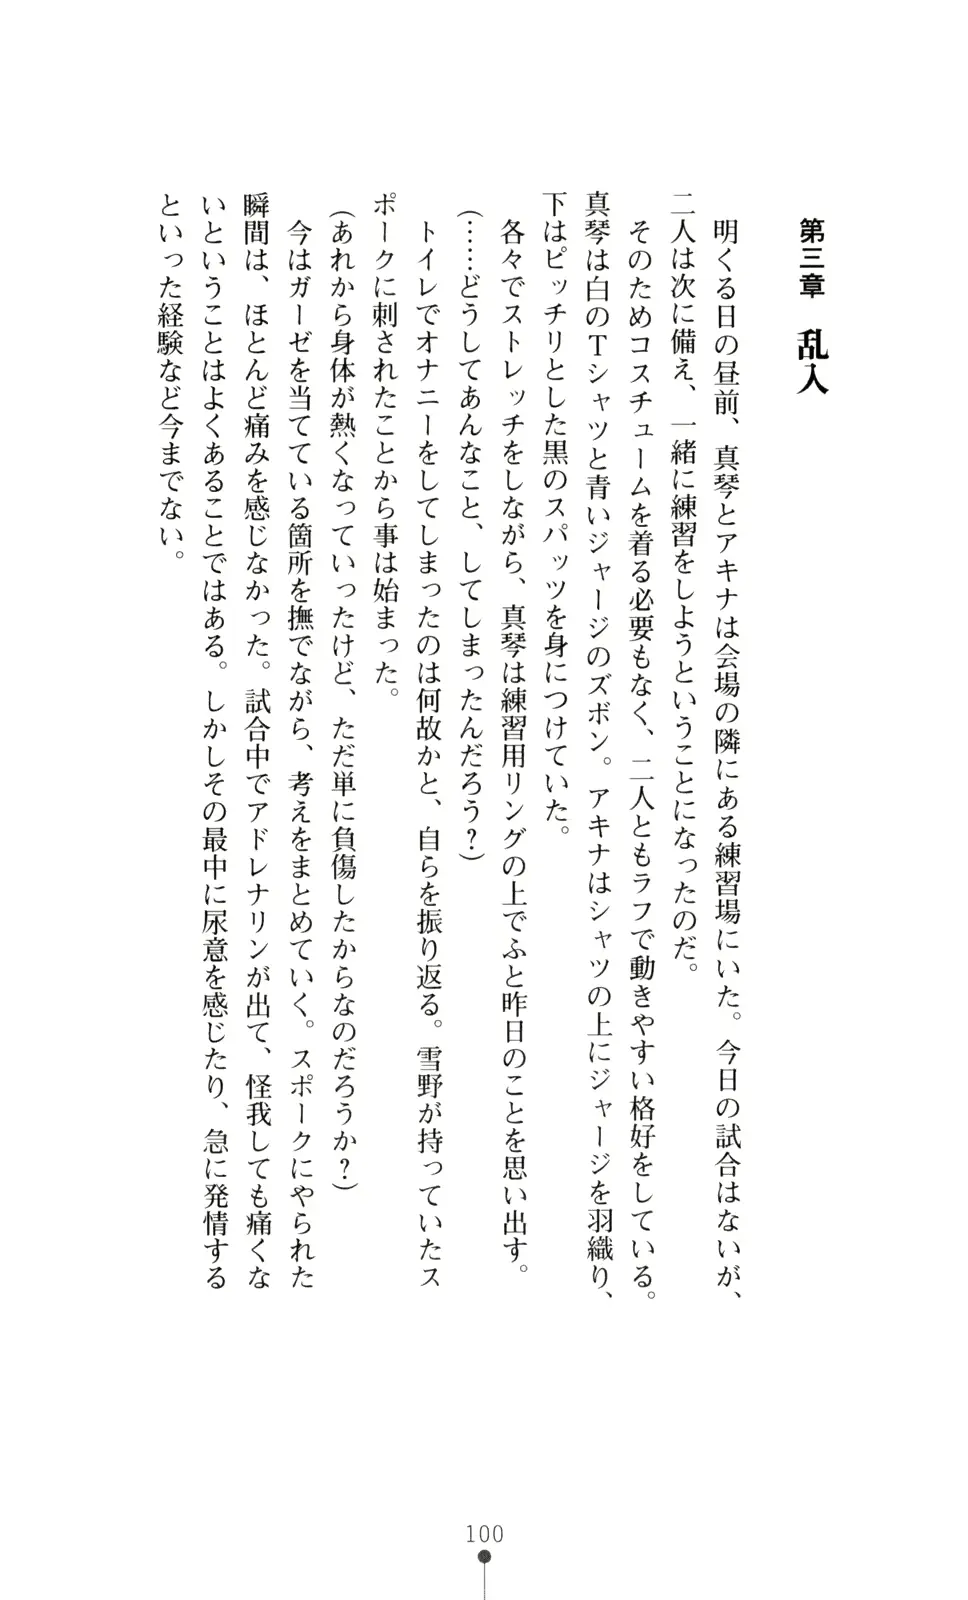 第三章　乱入
　明くる日の昼前、真琴とアキナは会場の隣にある練習場にいた。今日の試合はないが、
二人は次に備え、一緒に練習をしようということになったのだ。
　そのためコスチュームを着る必要もなく、二人ともラフで動きやすい格好をしている。
真琴は白のTシャツと青いジャージのズボン。アキナはシャツの上にジャージを羽織り、
下はピッチリとした黒のスパッツを身につけていた。
　各々でストレッチをしながら、真琴は練習用リングの上でふと昨日のことを思い出す。
（……どうしてあんなこと、してしまったんだろう？）
　トイレでオナニーをしてしまったのは何故かと、自らを振り返る。雪野が持っていたス
ポークに刺されたことから事は始まった。
（あれから身体が熱くなっていったけど、ただ単に負傷したからなのだろうか？）
　今はガーゼを当てている箇所を撫でながら、考えをまとめていく。スポークにやられた
瞬間は、ほとんど痛みを感じなかった。試合中でアドレナリンが出て、怪我しても痛くな
いということはよくあることではある。しかしその最中に尿意を感じたり、急に発情する
といった経験など今までない。
100